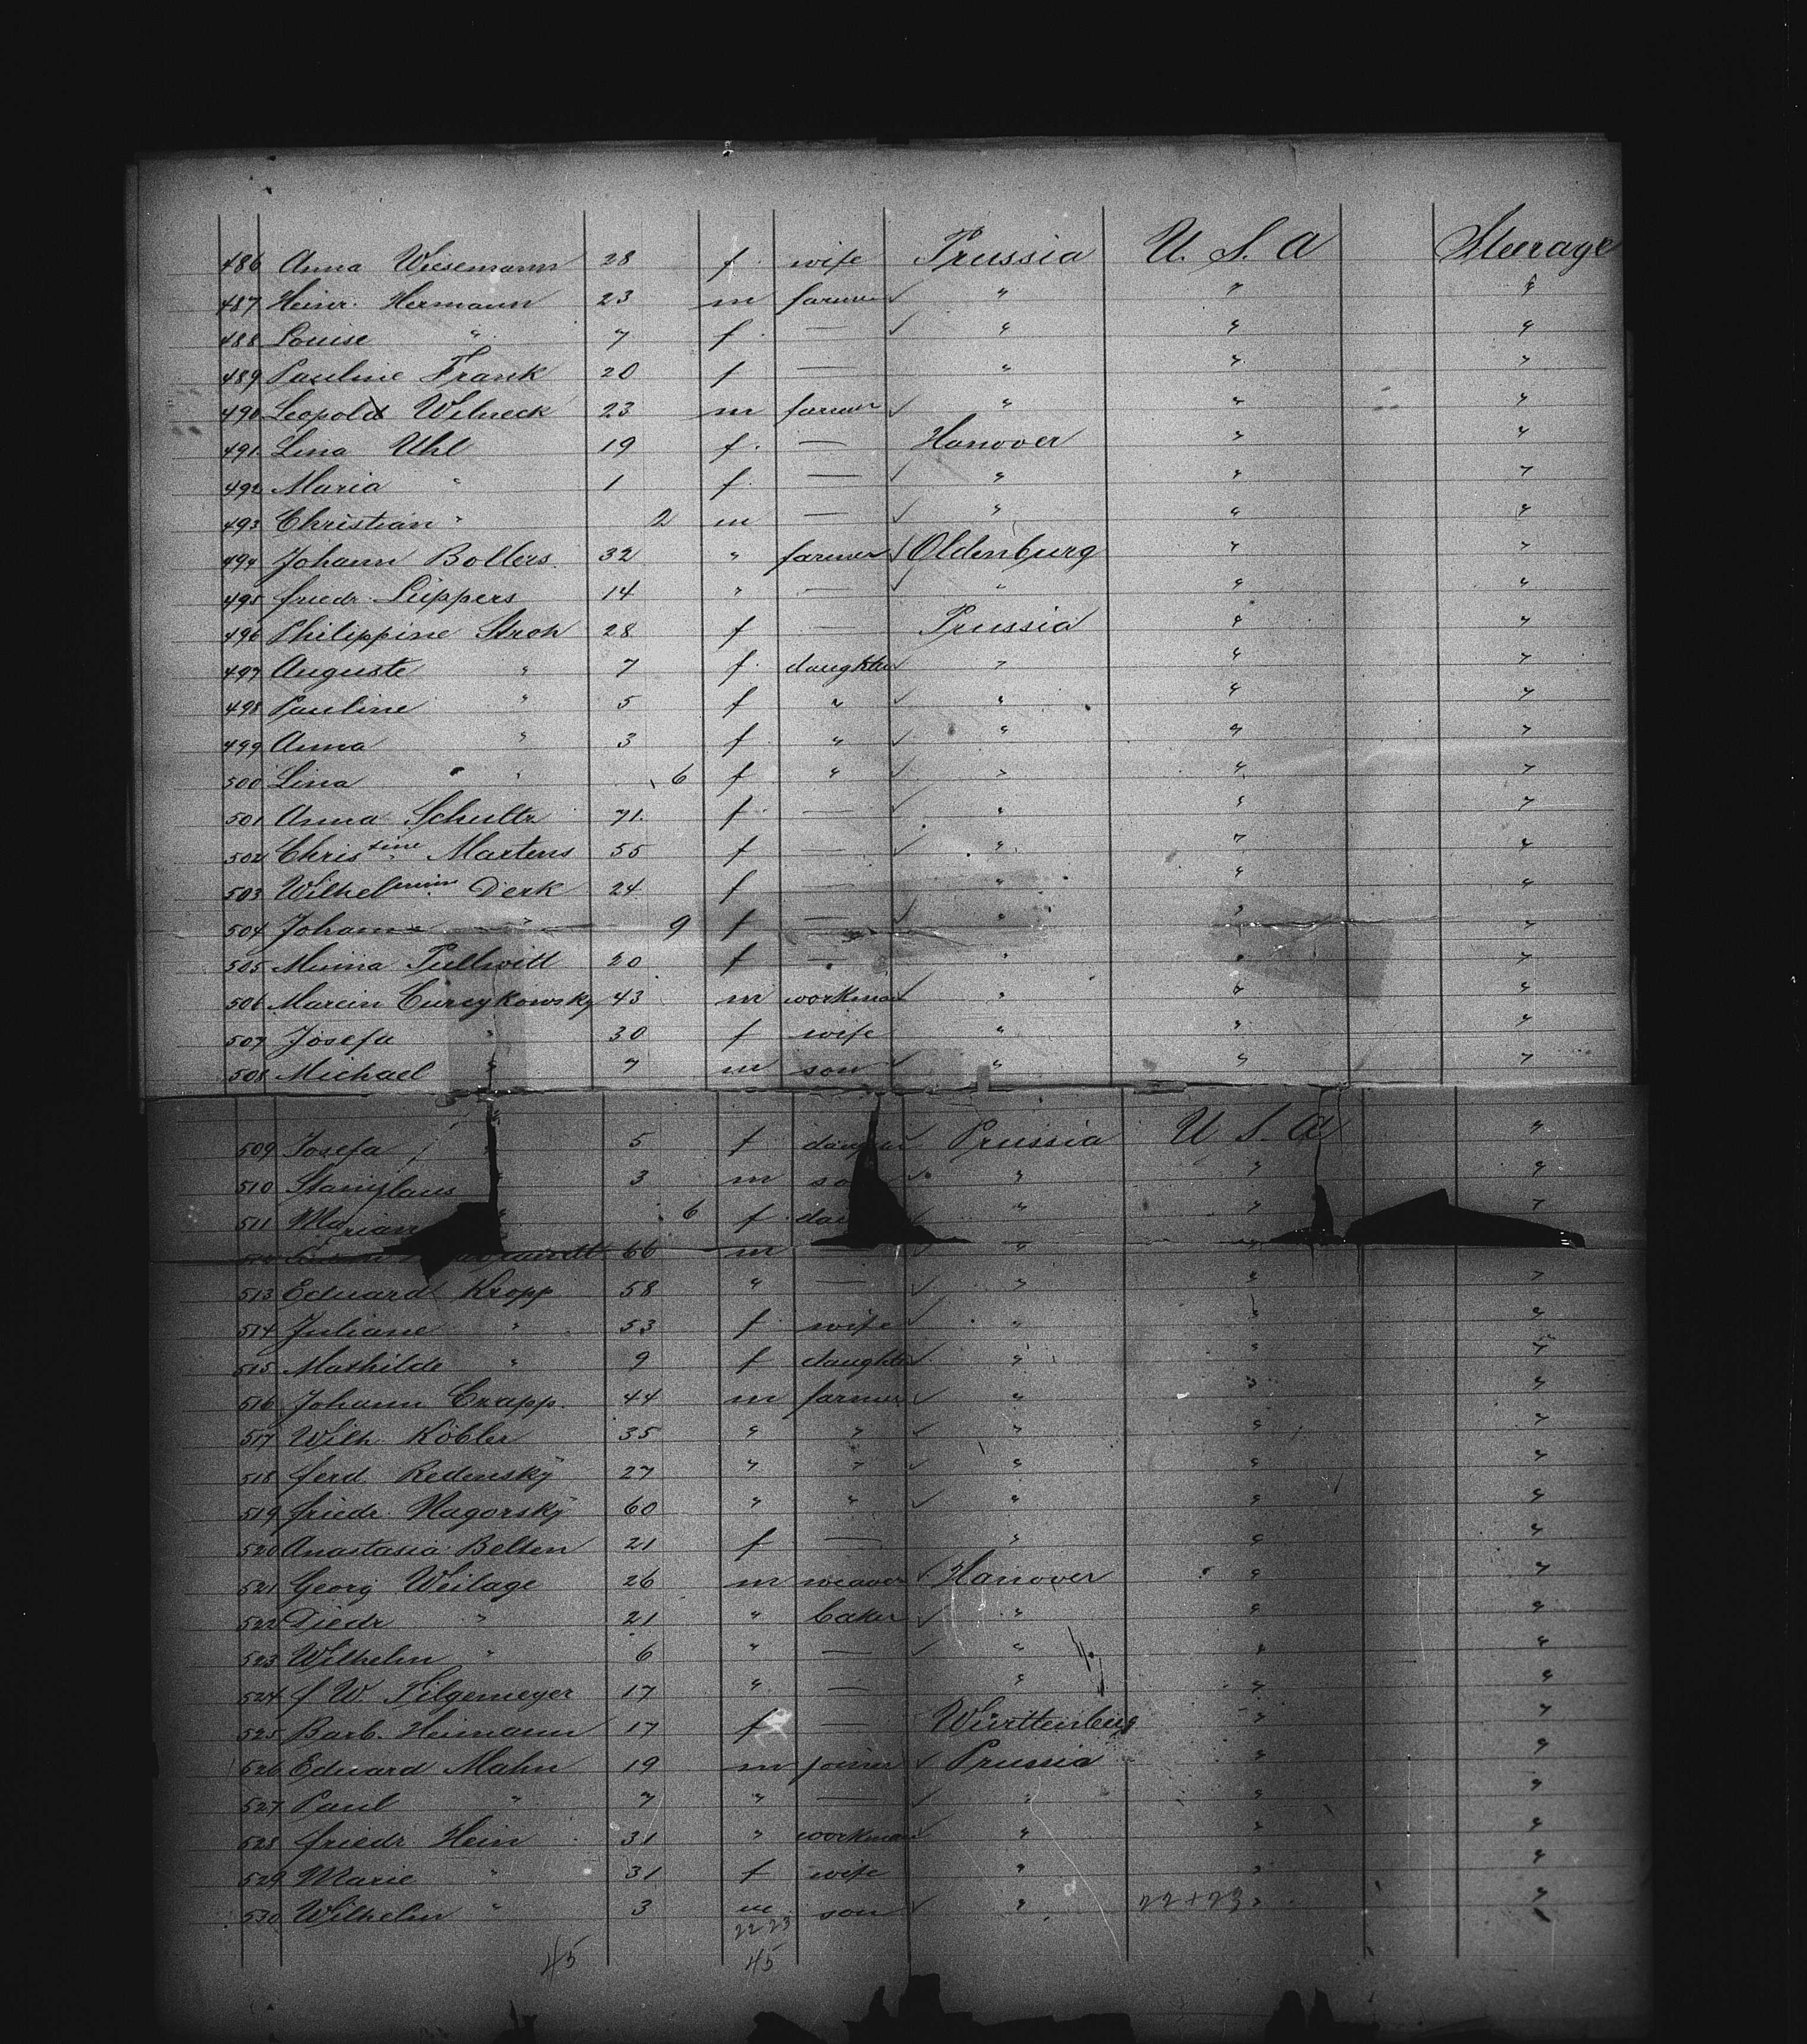 486 Anna Wiesemann 28 f. wife Prussia U. S. A Steerage
487 Heinr. Hermann 23 m farmer ✓ " " "
488 Louise " 7 f. — ✓ " " "
489 Pauline Frank 20 f — " " "
490 Leopold Wilneck 23 m farmer ✓ " " "
491 Lina Uhl 19 f. — Hanover " "
492 Maria " 1 f. — ✓ " " "
493 Christian " 2 m — ✓ " " "
494 Johann Bollers 32 " farmer ✓ Oldenburg " "
495 friedr. Lüppers 14 " — ✓ " " "
496 Philippine Stroh 28 f — Prussia " "
497 Auguste " 7 f. daughter ✓ " " "
498 Pauline " 5 f " ✓ " " "
499 Anna " 3 f " ✓ " " "
500 Lina " 6 f " ✓ " " "
501 Anna Schultz 71. f — ✓ " " "
502 Christine Martens 55 f — ✓ " " "
503 Wilhelmin Derk 24 f — " " "
504 Johann " 9 f — ✓ " " "
505 Minna Pellwitt 20 f — " " "
506 Marcin Curcykowsky 43 m workman ✓ " " "
507 Josefa " 30 f wife " " "
508 Michael " 7 m son ✓ " " "
509 Josefa " 5 f daughter ✓ Prussia U. S. A "
510 Stanislaus " 3 m so ✓ " " "
511 Marian " 6 f. dau ✓ " " "
66 m — ✓ " "
513 Eduard Kropp 58 " — ✓ " " "
514 Juliane " 53 f. wife ✓ " " "
515 Mathilde " 9 f daughter ✓ " " "
516 Johann Crapp. 44 m farmer ✓ " " "
517 Wilh. Köbler 35 " " ✓ " " "
518 ferd Redensky 27 " " ✓ " " "
519 friedr. Nagorsky 60 " " ✓ " " "
520 Anastasia Belten 21 f — " " "
521 Georg Weilage 26 m weaver ✓ Hanover " "
522 Diedr " 21 " baker ✓ " " "
523 Wilhelm " 6 " — ✓ " " "
524 f W. Tilgemeyer 17 " — " " "
525 Barb. Heimann 17 f — Württenburg " "
526 Eduard Mahn 19 m joiner ✓ Prussia " "
527 Paul " 7 " — ✓ " " "
528 friedr Hein 31 " workman ✓ " " "
529 Marie " 31 f wife " " "
530 Wilhelm " 3 m son ✓ " 22+23 " "
22 23
45 45